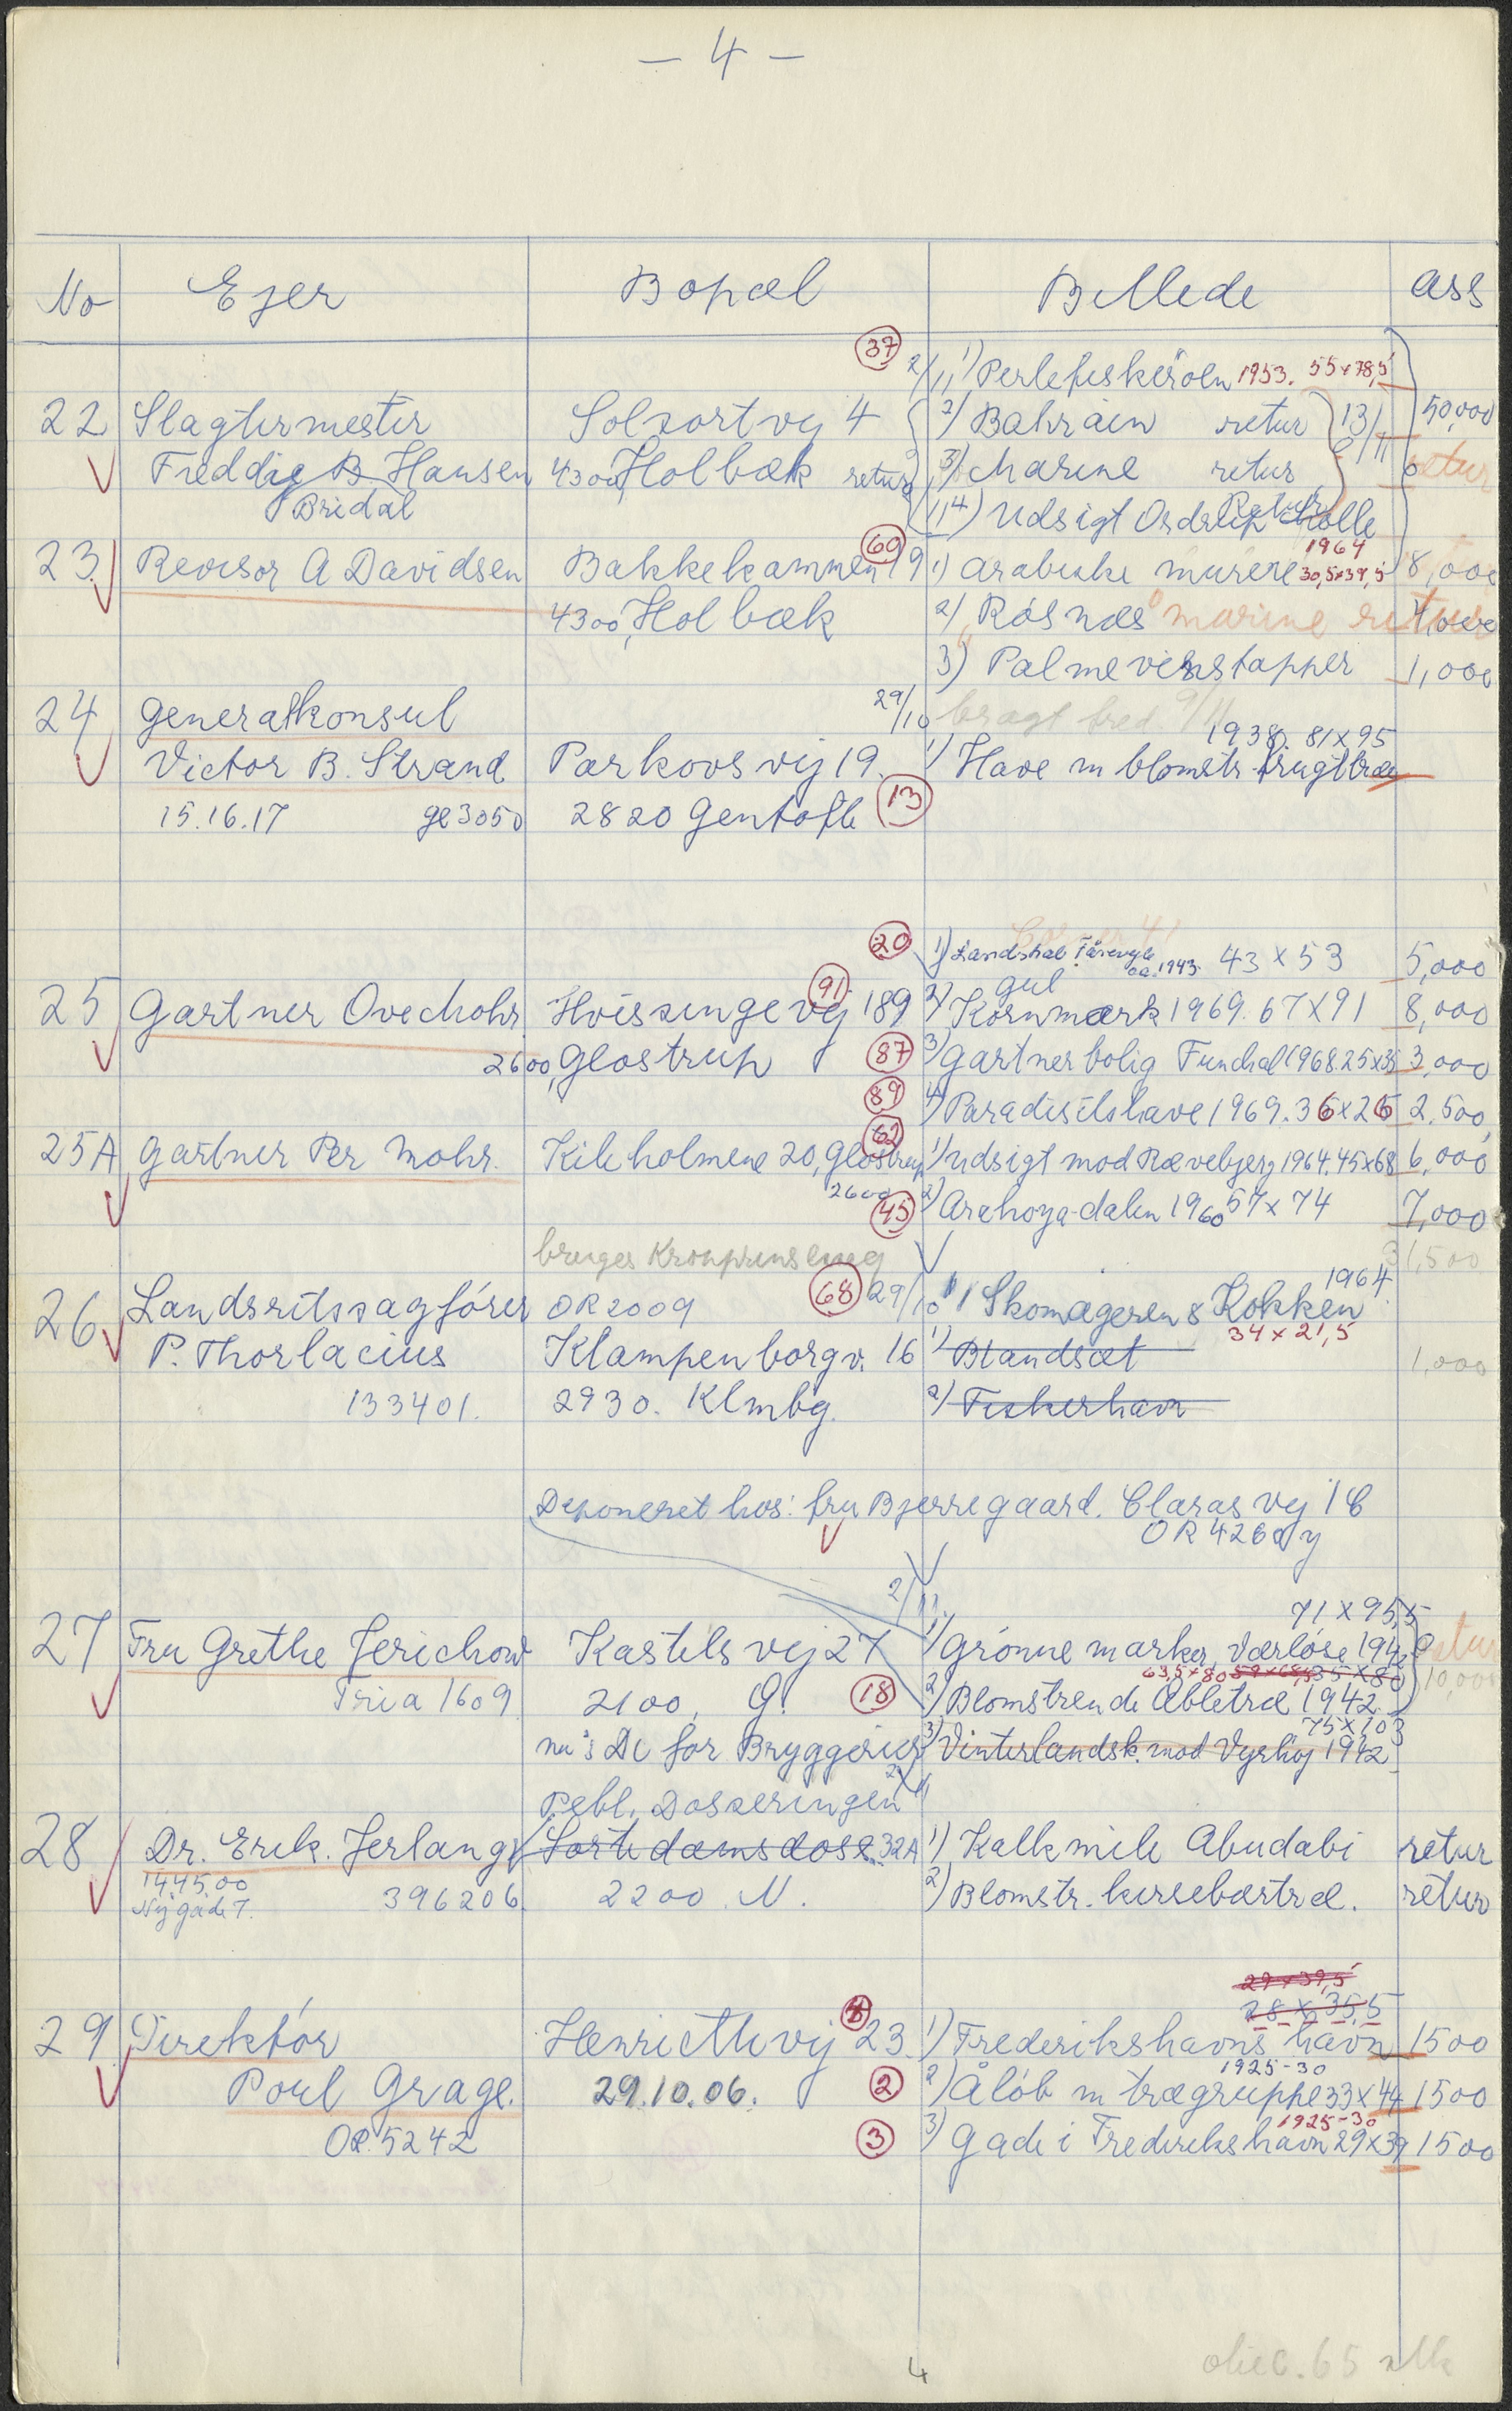 - 4 -
No Ejer Bopæl Billede ass
(37) 2/11 1) Perlefiskerøen 1953. 55 x 78,5
22 Slagtermester Solsortvej 4 2) Bahrain retur 13/11 50,000
Freddie B. Hansen 4300 Holbæk retur 3) Marine retur retur
Bridal 4) Udsigt Ordrup Mølle Retur
23 Revisor A Davidsen Bakkekammen 19 (60) 1) Arabiske murere 1964 30,5x39,5 8,000
4300, Holbæk 2) "Røsnæs" marine retur 4,000
3) Palmevinstapper 1,000
24 Generalkonsul 29/10 bragt fred. 9/11
Victor B. Strand Parkovsvej 19. 1) Have m blomstr. frugttræ 1938. 81x95
15.16.17 ge3050 2820 Gentofte (13)
(20) 1) Landskab Tårevejle ca. 1943. 43 x 53 5,000
25 Gartner Ove Mohr Hvissingevej 189 (91) 2) gul Kornmark 1969. 67x91 8,000
2600, Glostrup (87) 3) Gartnerbolig Funchal 1968. 25x35 3,000
(89) 4) Paradisets have 1969. 36x26 2.500
25A Gartner Per Mohr. Kileholmene 20, Glostrup (62) 1) Udsigt mod Rævebjerg 1964. 45x68 6,000
2600 (45) 2) Arahoya-dalen 1960 57x74 7,000
bruges Kronprinsensg 31,500
26 Landsretssagfører OR2009 (68) 29/10 1) Skomageren & Kokken 1964.
34 x 21,5
P. Thorlacius Klampenborgv. 16 1) Blandsæt 1,000
133401. 2930. Klmbg. 2) Fiskerhavn
Deponeret hos: fru Bjerregaard. Claras vej 16
OR 4260 y
2/11 71 x 95,5
27 Fru Grethe Jerichow Kastelsvej 27 1) Grønne marker, Værløse 1942 retur
63,5x80 59x68,5 35x80 10,000
Tria 1609 2100, Ø. (18) 2) Blomstrende Æbletræ 1942.
75x103
nu: De for Bryggerier 3) Vinterlandsk. mod Vyrhøj 1942
Pebl. Dosseringen
28 Dr. Erik. Jerlang Sortedamsdoss. 32A 1) Kalkmile Abudabi retur
144500
Nygade 7. 396206. 2200. N. 2) Blomstr. kirsebærtræ. retur
29x39,5
28 x 35,5
29 Direktør Henriettevej 23 1) Frederikshavns havn 1500
1925-30
Poul Grage. 29.10.06. (2) 2) Åløb m trægruppe 33x44 1500
1925-30
OR. 5242 (3) 3) Gade i Frederikshavn 29x39 1500
4